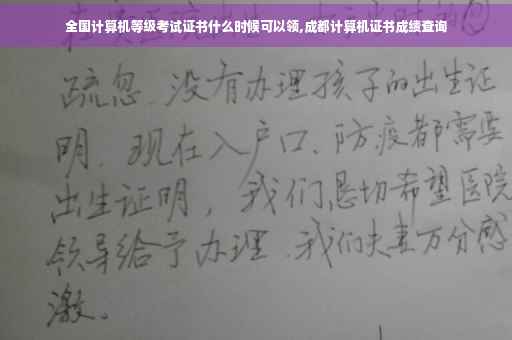 全国计算机等级考试证书什么时候可以领,成都计算机证书成绩查询
疏忽、没有办理孩子的出生证
明、现在入户口、防疫都需要
出生证明，我们恳切希望医院
领导给予办理、我们夫妻万分感
激。